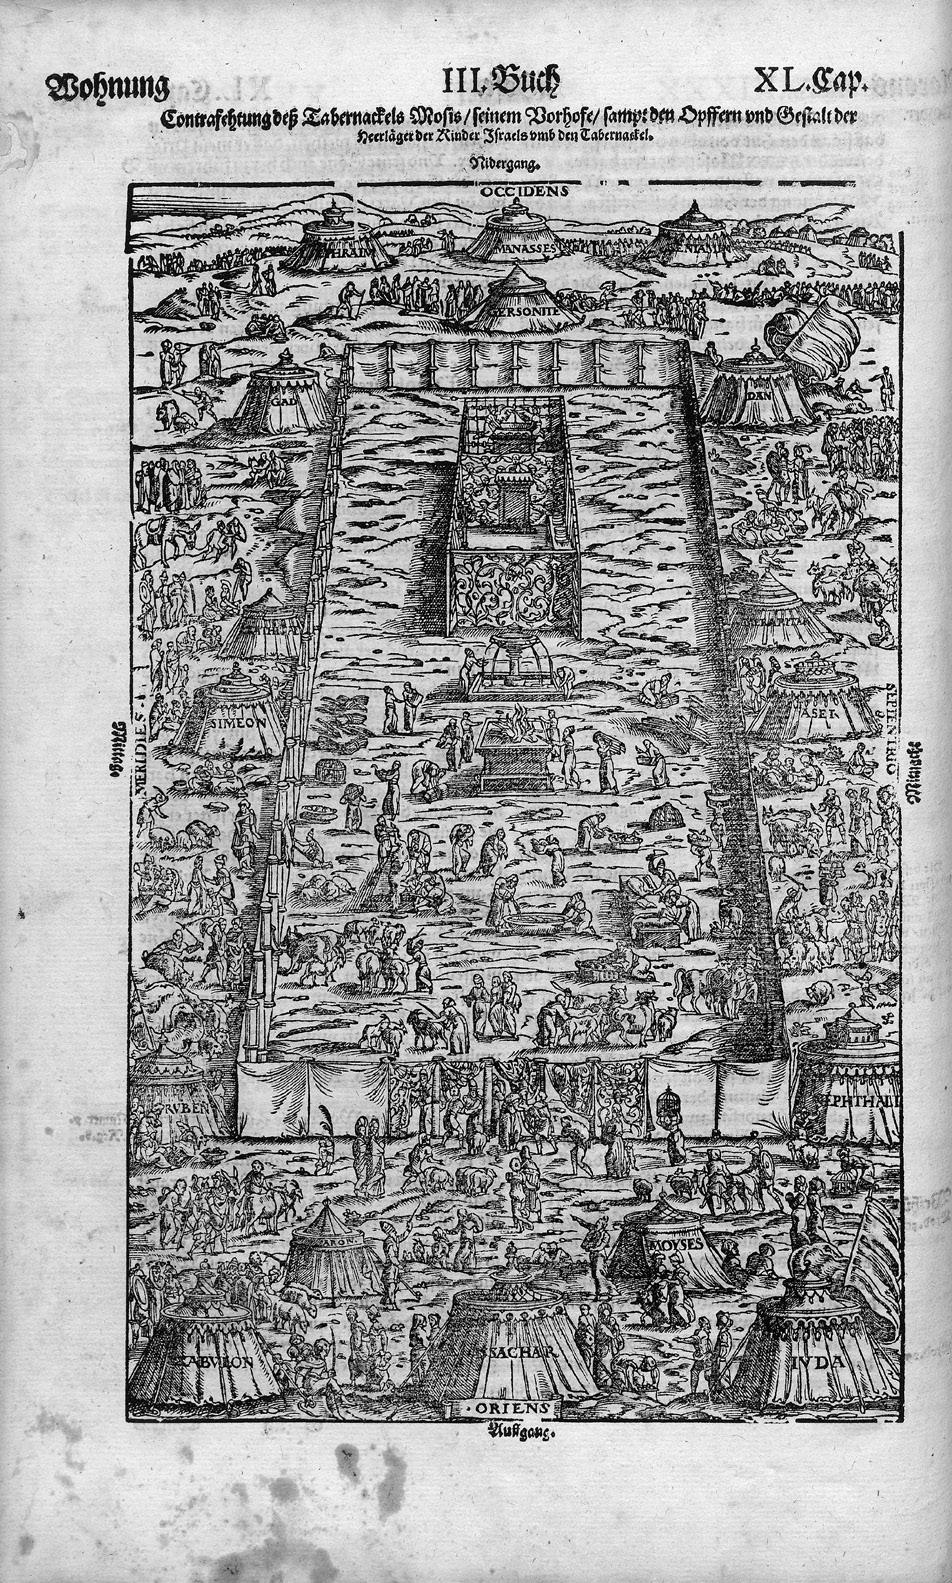 Wohnung III. Buch XL. Cap.
Contrafehtung deß Tabernackels Mosis / seinem Vorhofe / sampt den Opffern vnd Gestalt der
Heerläger der Kinder Israels vmb den Tabernackel.
Nidergang.
OCCIDENS
EPHRAIM MANASSES
GERSONITE
GAD DAN
SIMEON ASER
MERIDIES. SEPTENTRIO
Mittag. Mitnacht
RVBEN NEPHTHALI
ARON MOYSES
ZABVLON ISACHAR IVDA
· ORIENS
Auffgang.